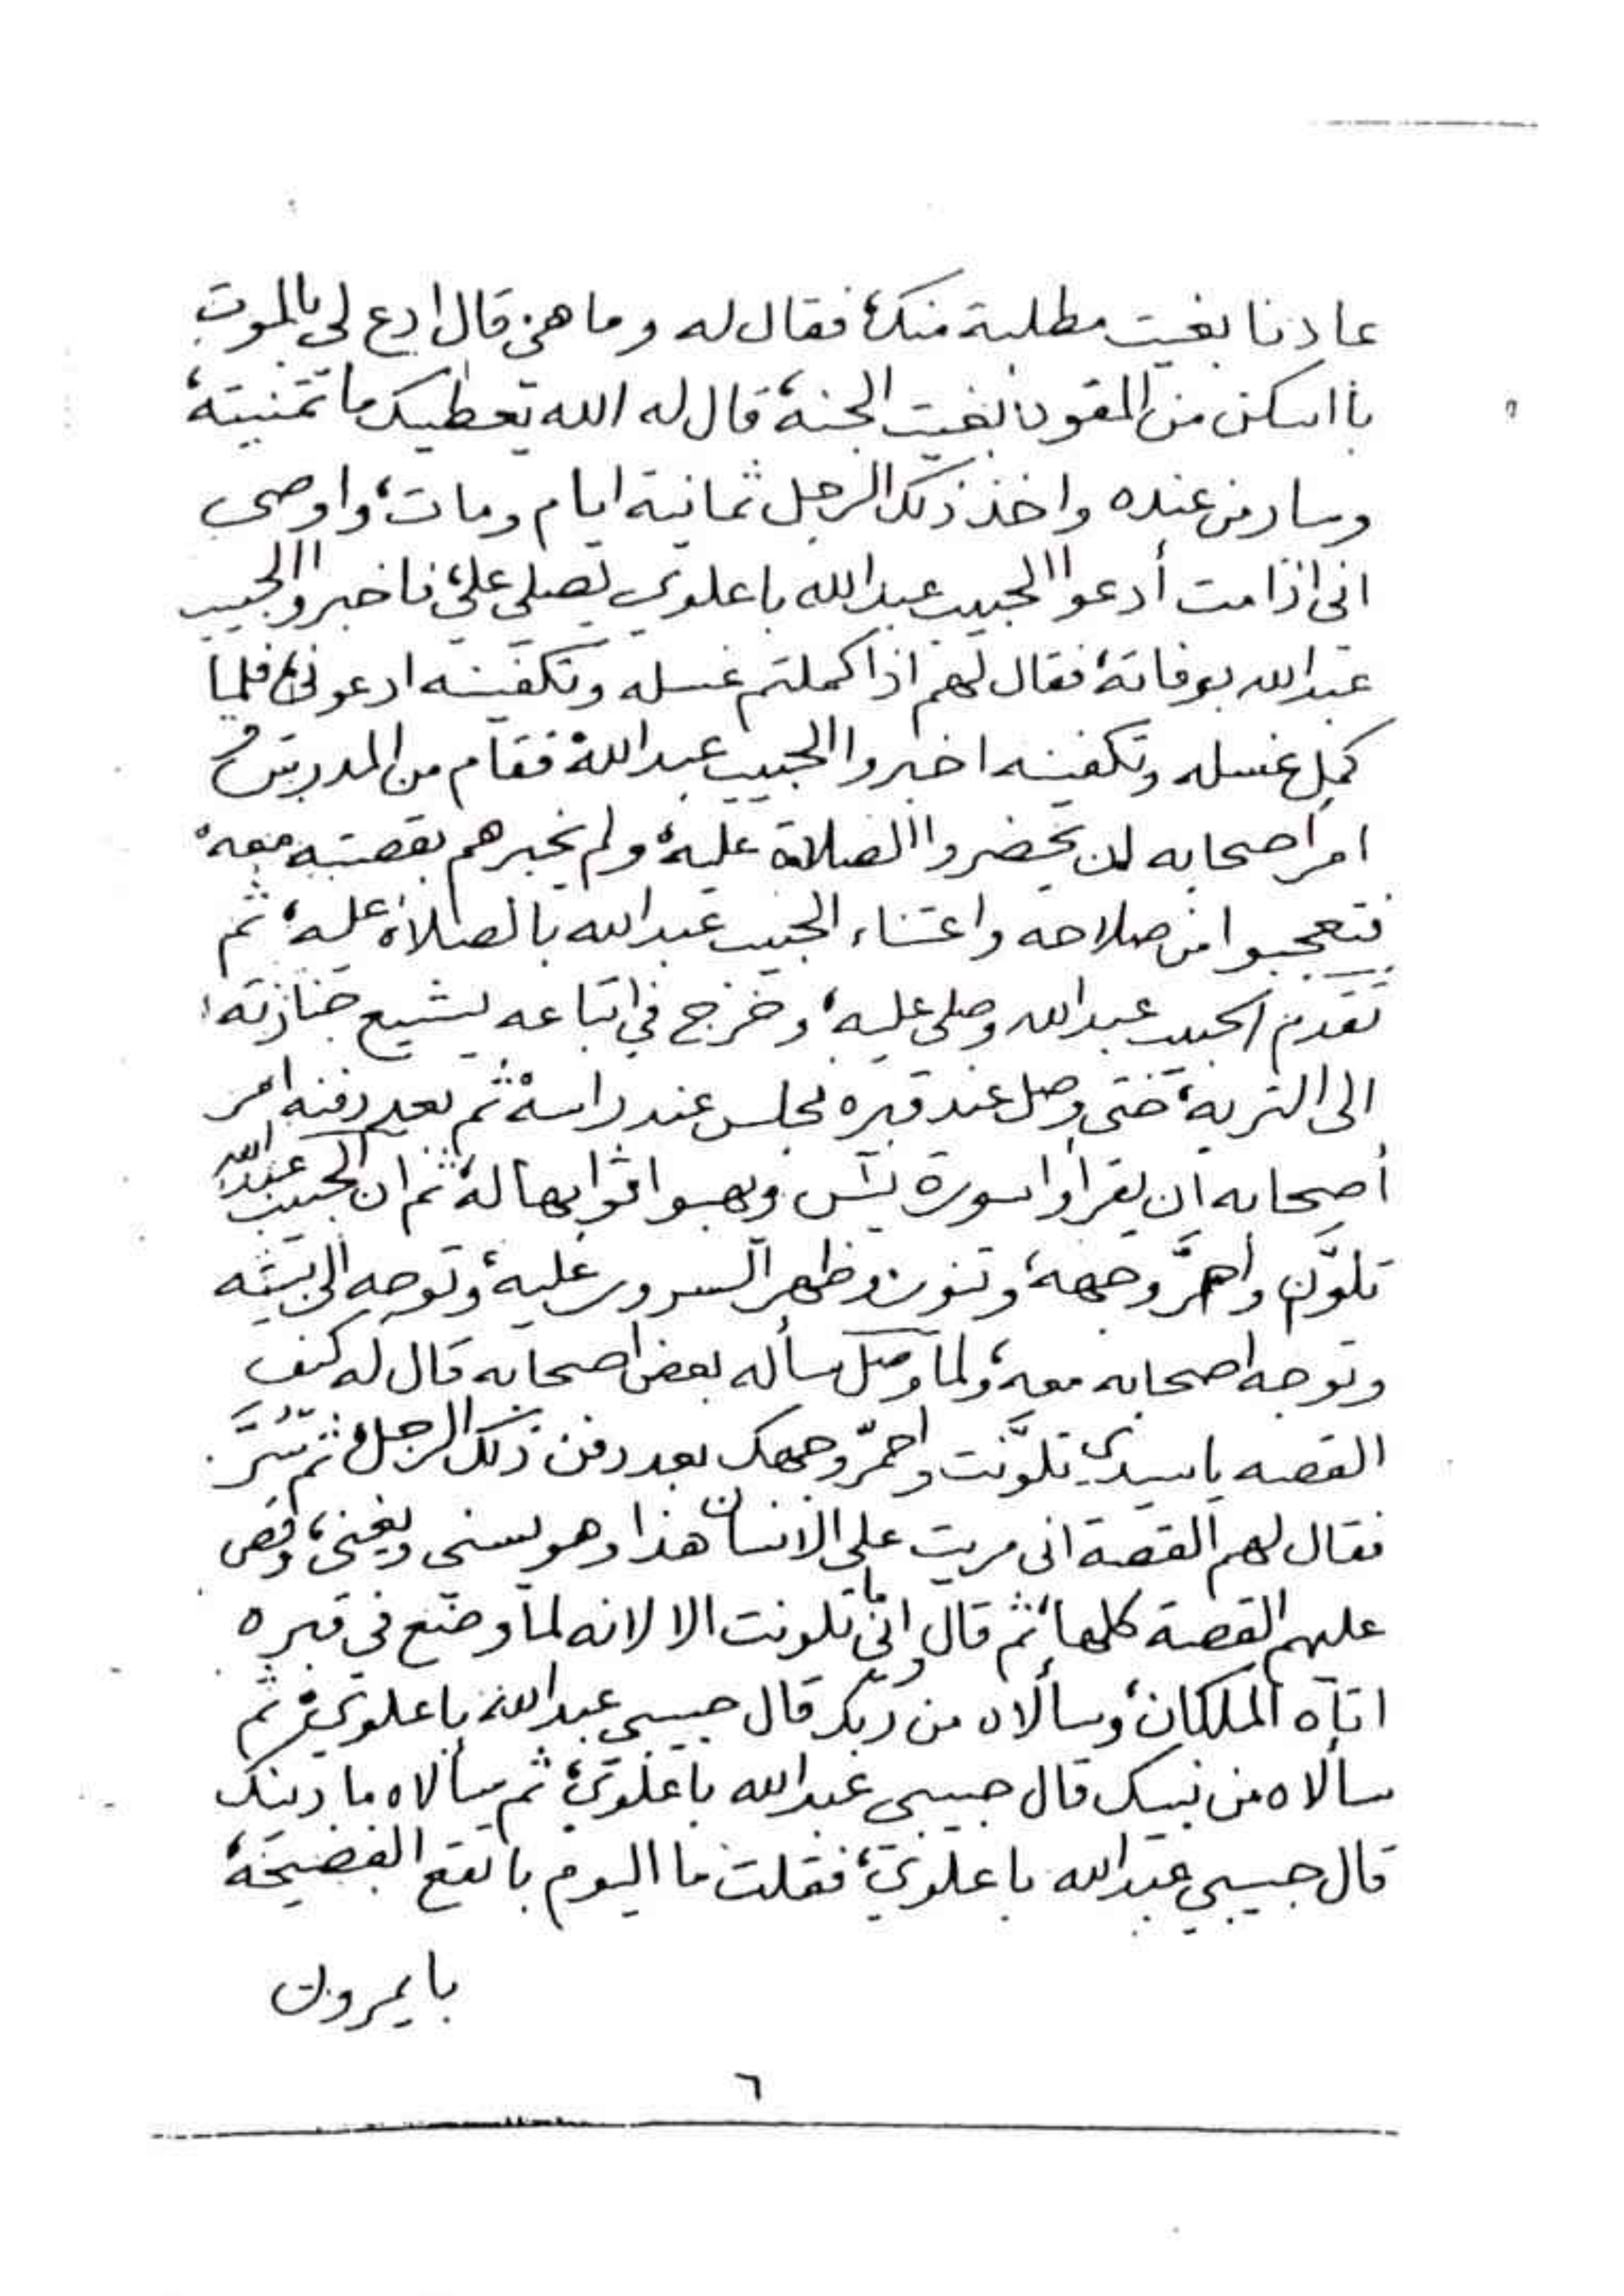 عادنا بغيت مطلبة منك، فقال له وما هي قال ادع لي بالموت
با اسكن من المقود بغيت الجنة، قال له الله يعطيك ما تمنيته،
وسار من عنده واخذ ذلك الرجل ثمانية ايام ومات، واوصى
انى اذا مت أدعوا الحبيب عبدالله باعلوي يصلي عليّ، فاخبروا الحبيب
عبدالله بوفاته، فقال لهم اذا كملتم غسله وتكفينه ادعونى، فلما
كمل غسله وتكفينه اخبروا الحبيب عبدالله، فقام من المدرس و
امر اصحابه لن يحضروا الصلاة عليه، ولم يخبرهم بقصته معه،
فتعجبوا من صلاحه واعتناء الحبيب عبدالله بالصلاة عليه، ثم
تقدم الحبيب عبدالله وصلى عليه، وخرج في اتباعه يشيع جنازته،
الى التربة، حتى وصل عند قبره فجلس عند راسه، ثم بعد دفنه امر
أصحابه أن يقرأوا سورة يس ويهبوا ثوابها له، ثم ان الحبيب عبدالله
تلوَّن واحمرَّ وجهه، وتنور وظهر السرور عليه، وتوجه الى بيته
وتوجه اصحابه معه، ولما وصل سأله بعض اصحابه قال له كيف
القصه ياسيدي تلوَّنت واحمرّ وجهك بعد دفن ذلك الرجل، ثم تسَرَّ
فقال لهم القصة انى مريت على الانسان هذا وهو يسنى ويغنى، وقص
عليهم القصة كلها، ثم قال وانى ما تلونت الا لانه لما وضع في قبره
اتاه الملكان، وسألاه من ربك قال حبيبي عبدالله باعلوي، ثم
سألاه من نبيك قال حبيبي عبدالله باعلوي، ثم سألاه ما دينك
قال حبيبي عبدالله باعلوي، فقلت ما اليوم باتقع الفضيحة،
بايمرون
٦